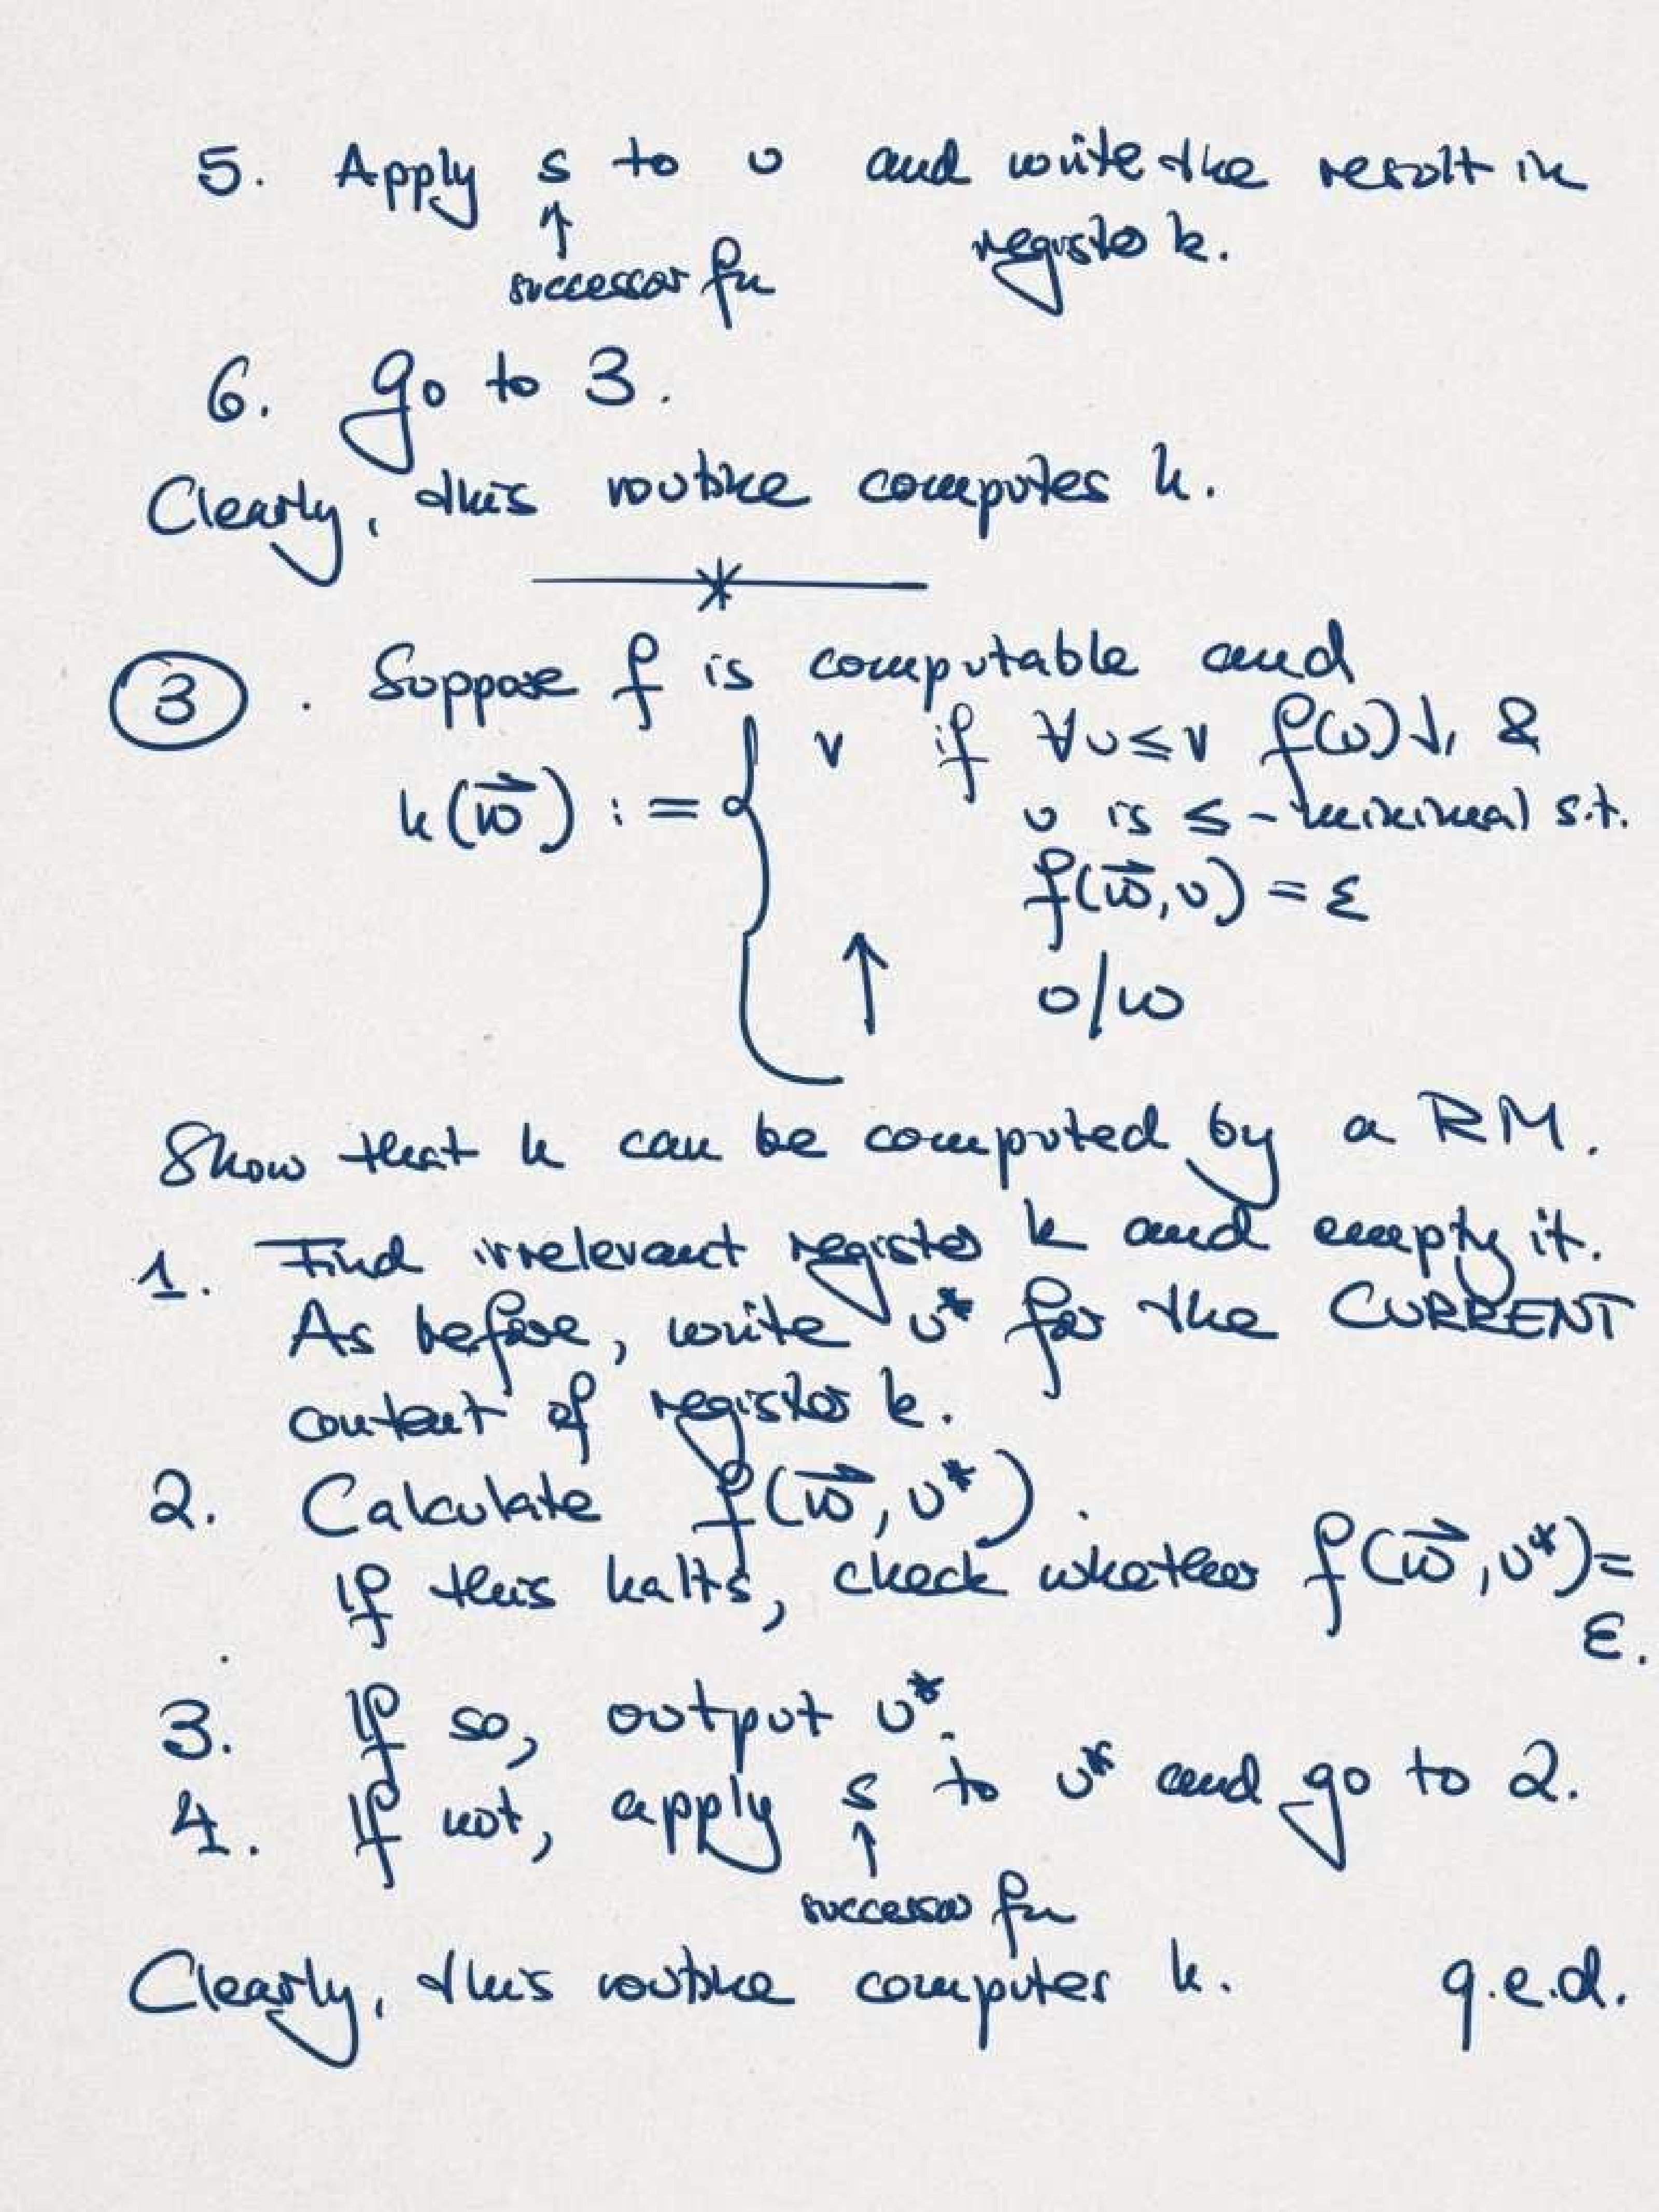 5. Apply s to u and write the result in
↑ register k.
successor fn
6. Go to 3.
Clearly, this routine computes h.
③. Suppose f is computable and
v if ∀u≤v f(u)↓, &
h(w⃗) := { u is ≤-minimal s.t.
f(w⃗,u) = ε
↑ o/w
Show that h can be computed by a RM.
1. Find irrelevant register k and empty it.
As before, write u* for the CURRENT
content of register k.
2. Calculate f(w⃗,u*).
If this halts, check whether f(w⃗,u*)=
ε.
3. If so, output u*.
4. If not, apply s to u* and go to 2.
↑
successor fn
Clearly, this routine computes h. q.e.d.